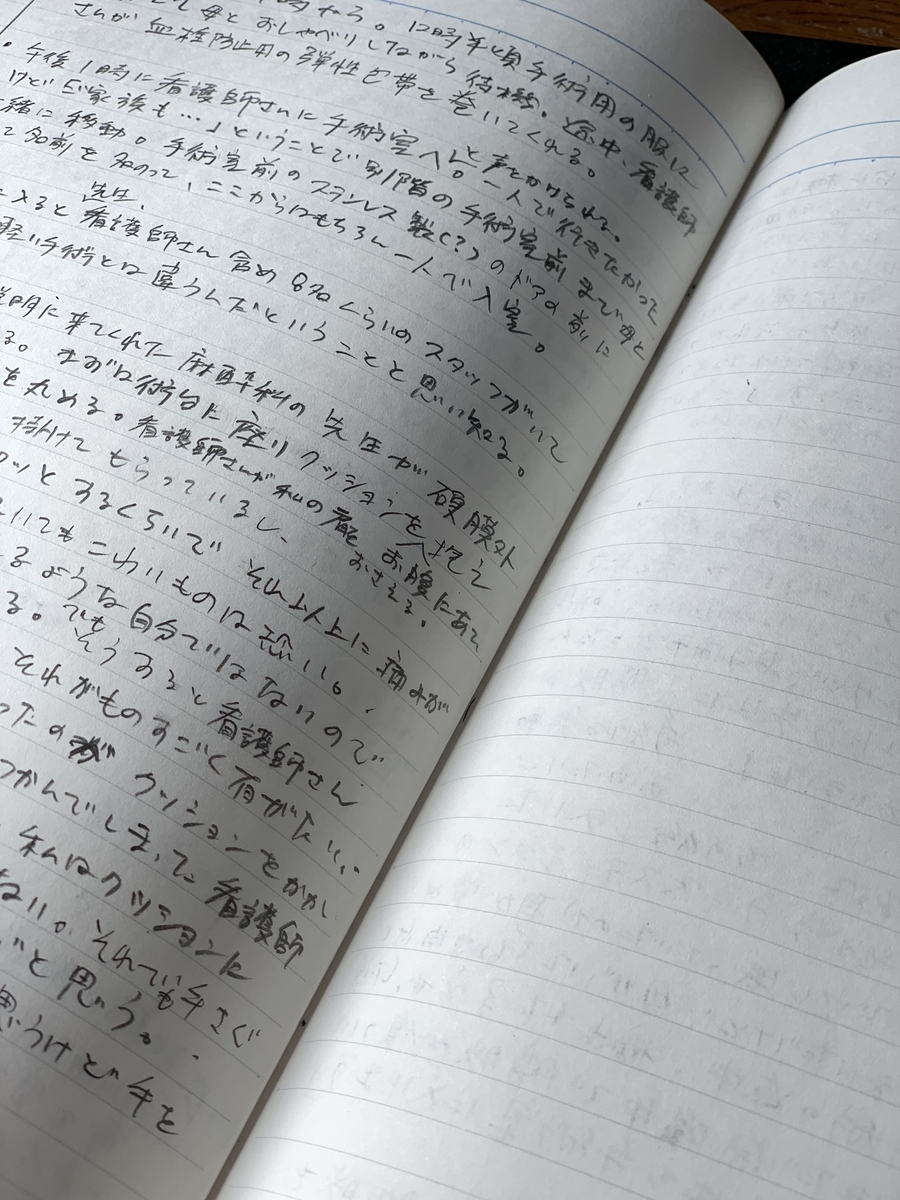 時から。12時半頃手術用の服に
母とおしゃべりしながら待機。途中、看護師
さんが血栓防止用の弾性包帯を巻いてくれる。
・午後1時に看護師さんに手術室へと声をかけられる。
けど「ご家族も…」ということで別階の手術室前まで母と
緒に移動。手術室前のステンレス製(?)のドアの前に
て名前を名のって、ここからはもちろん一人で入室。
入ると先生、看護師さん含め8名くらいのスタッフがいて
軽い手術とは違うんだということを思い知る。
説明に来てくれた麻酔科の先生が硬膜外
る。まずは術台に座りクッションを抱え
を丸める。看護師さんが私の お腹にあて
持けてもらっているし、 おさえる。
ッとするくらいで それ以上に痛みが
いてもこわいものは恐い。
るような自分ではないので
る。でもそうすると看護師さん
それがものすごく有がたい。
ったのが クッションをかかし
つかんでしまって 看護師
私はクッションに
ない。それでも手さぐ
と思う。
思うけど、手を